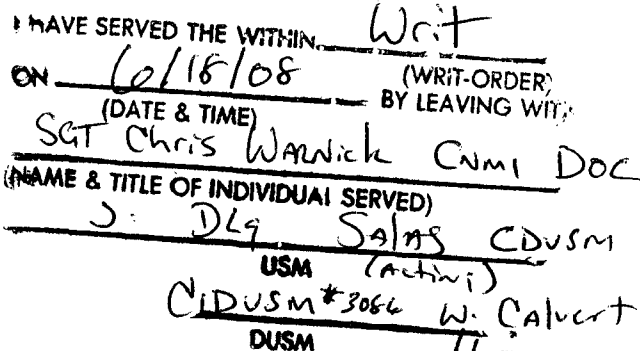 I HAVE SERVED THE WITHIN Writ
ON 6/18/08 (WRIT-ORDER)
(DATE & TIME) BY LEAVING WITH
SGT Chris WARNick CNMI DOC
(NAME & TITLE OF INDIVIDUAL SERVED)
J. DLG SAlAS CDUSM
USM (Acting)
CIDUSM #3086 W. CAlvert
DUSM